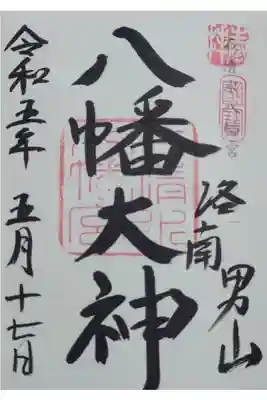 洛南男山
八幡大神
令和五年五月十七日